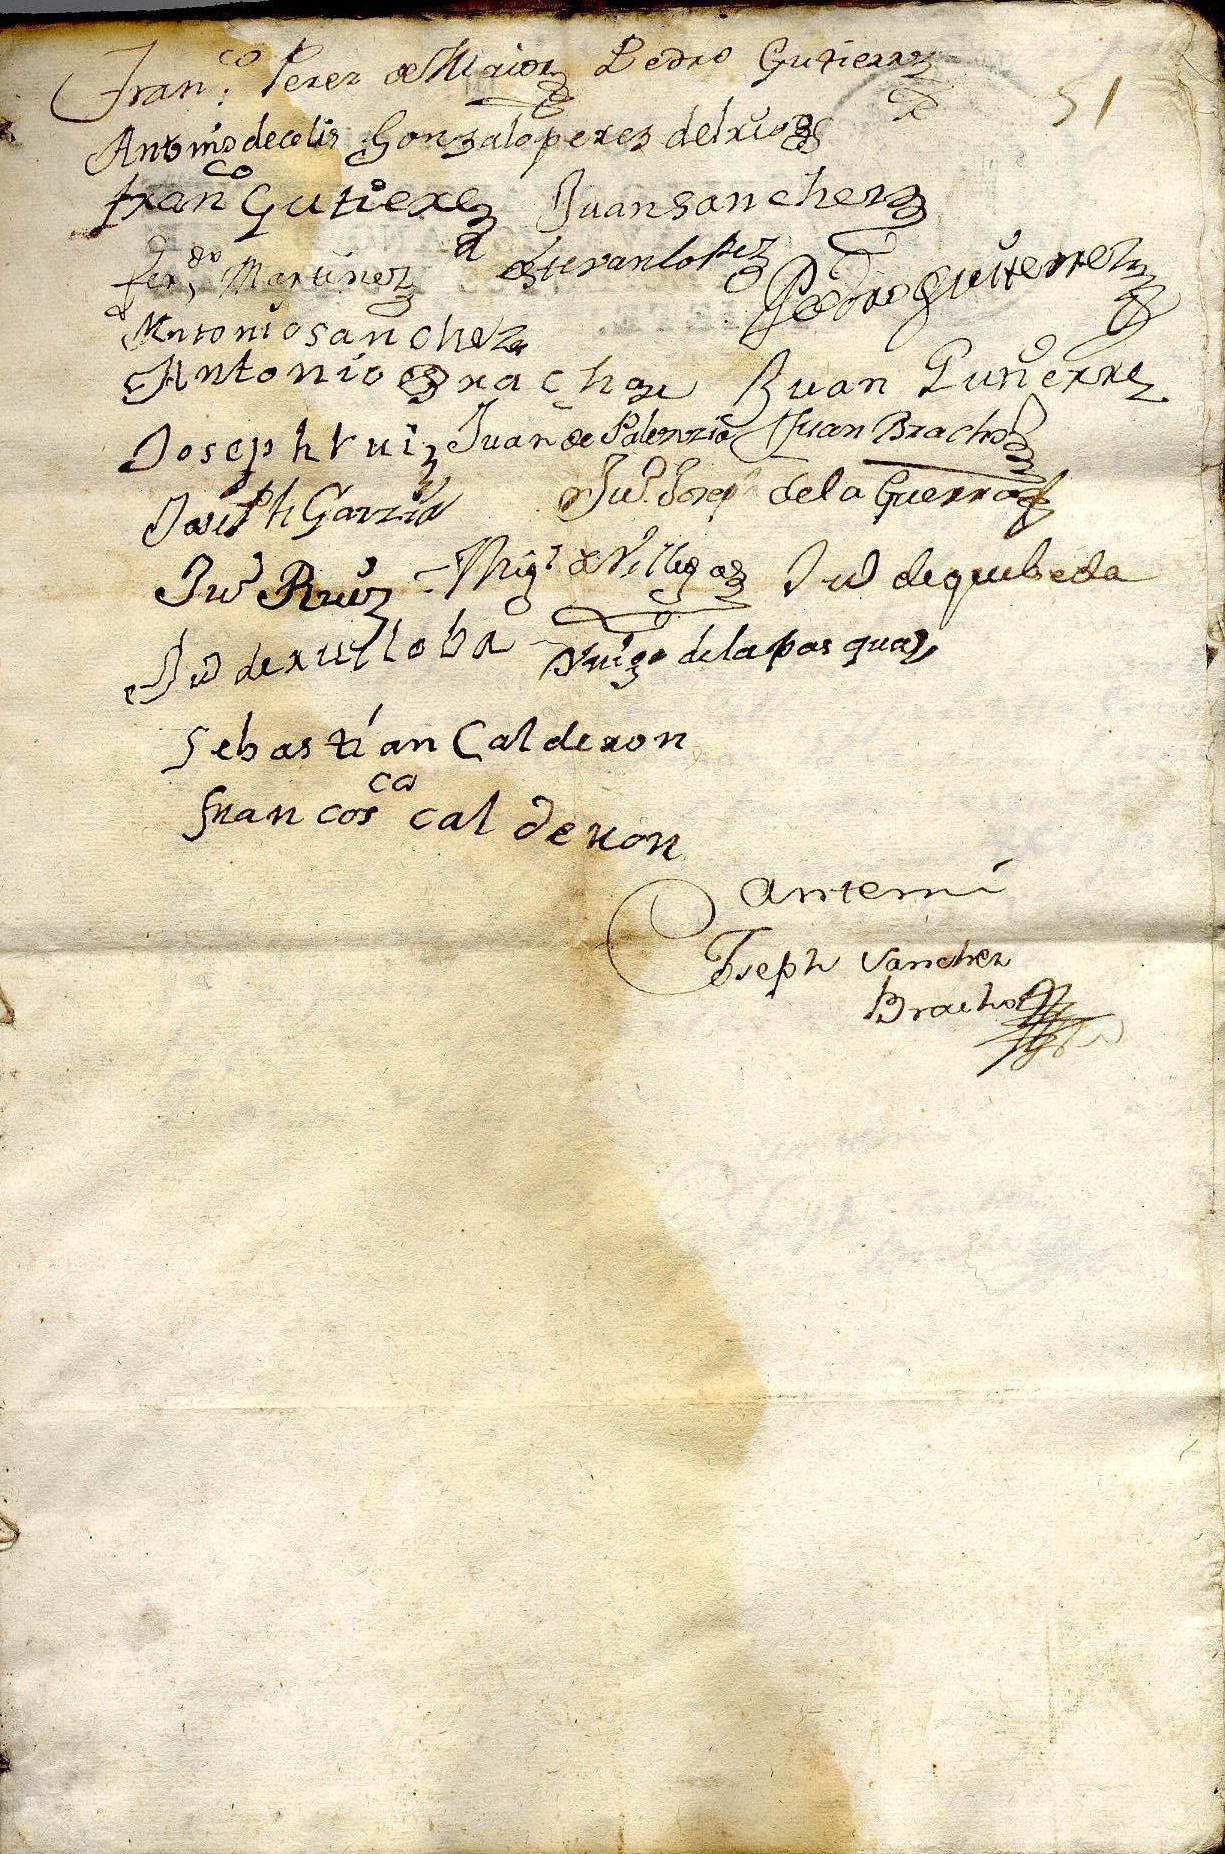 Franco. Perez de Pedro Gutierrz
51
Antonio de celis Gonzalo perez del rio
Franco Gutierez Juan sanchez
Ferdo Martinez estevan lopez Pedro Gutierrez
Antonio sanchez
Antonio Bracho Juan Gutierrez
Joseph Ruiz Juan de Palenzia Juan Bracho
Joseph Garzia Juo Joseph de la Guerra
Juo Ruiz Migl de Villegas Juo de quebeda
Juo de ruyloba de la pasqua
Sebastían Calderon
francosco calderon
Ante mí
Joseph Sanchez
Bracho